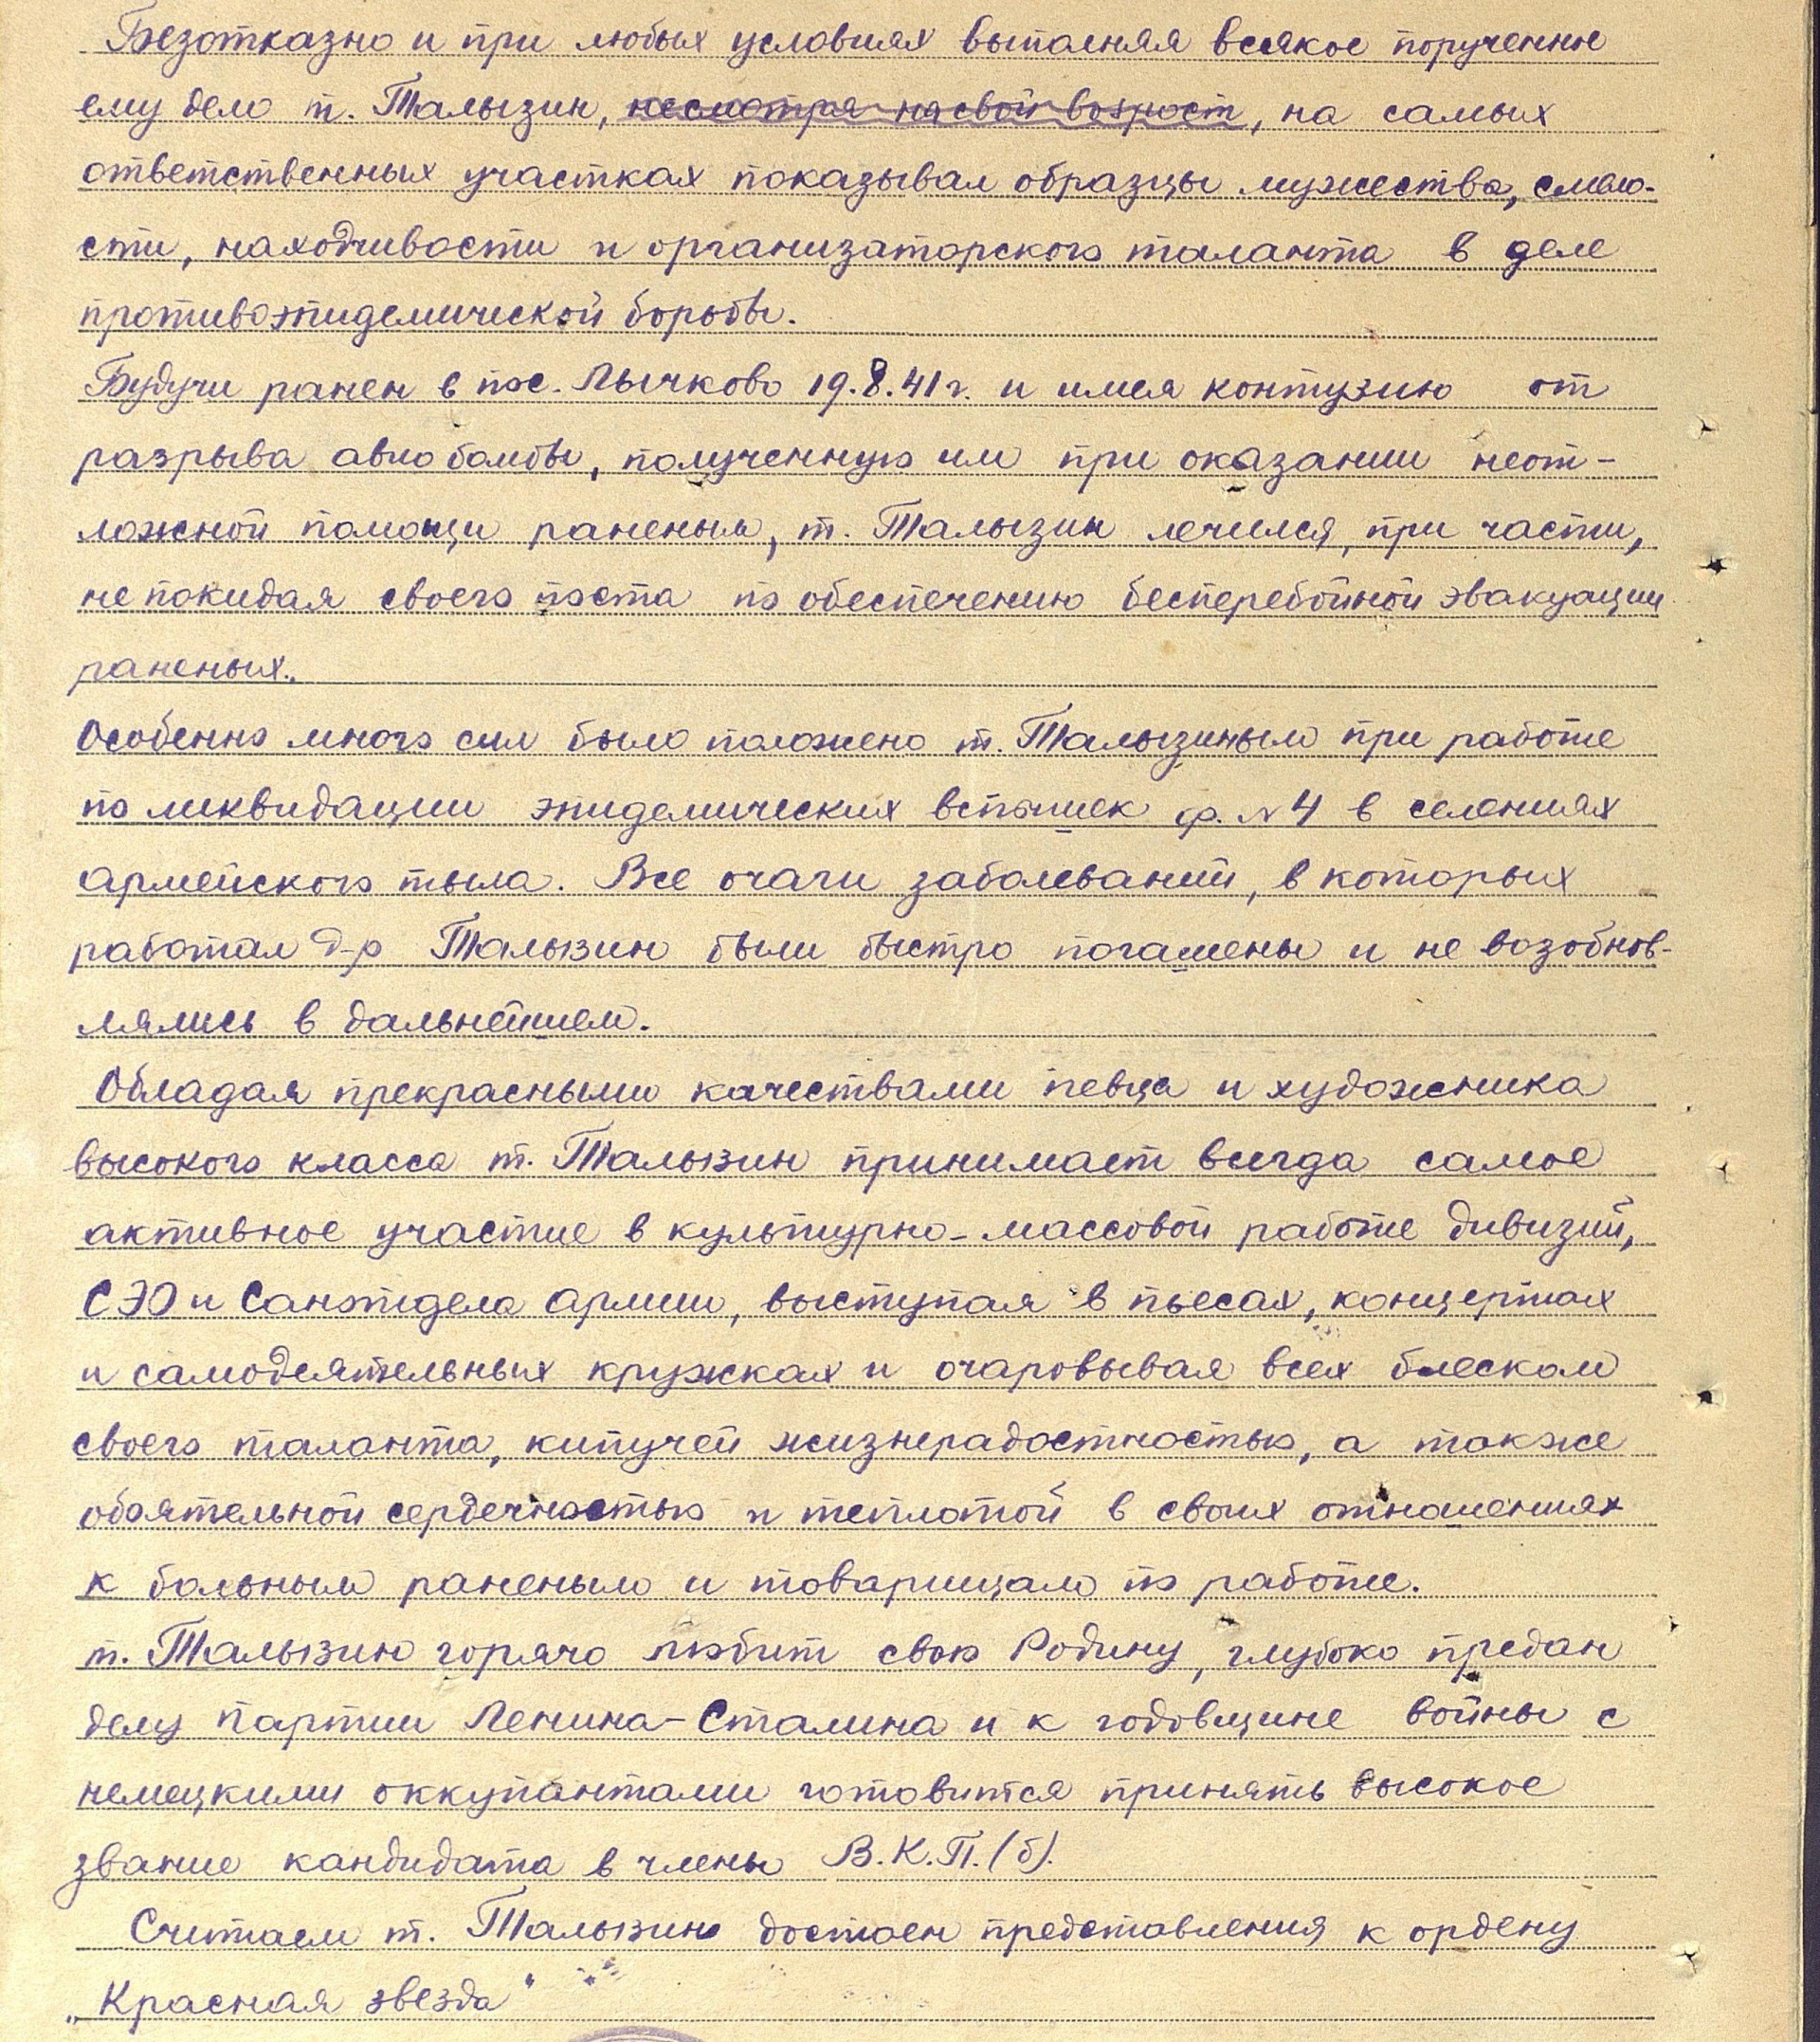 Безотказно и при любых условиях выполняя всякое порученное
ему дело т. Талызин, несмотря на свой возраст, на самых
ответственных участках показывал образцы мужества, смело-
сти, находчивости и организаторского таланта в деле
противоэпидемической борьбы.
Будучи ранен в пос. Лычково 19.8.41 г. и имея контузию от
разрыва авиабомбы, полученную им при оказании неот-
ложной помощи раненым, т. Талызин лечился при части,
не покидая своего поста по обеспечению бесперебойной эвакуации
раненых.
Особенно много сил было положено т. Талызиным при работе
по ликвидации эпидемических вспышек ф. №4 в селениях
армейского тыла. Все очаги заболеваний, в которых
работал д-р Талызин были быстро погашены и не возобнов-
лялись в дальнейшем.
Обладая прекрасными качествами певца и художника
высокого класса т. Талызин принимает всегда самое
активное участие в культурно-массовой работе дивизий,
СЭО и Санотдела Армии, выступая в пьесах, концертах
и самодеятельных кружках и очаровывая всех блеском
своего таланта, кипучей жизнерадостностью, а также
обаятельной сердечностью и теплотой в своих отношениях
к больным раненым и товарищам по работе.
т. Талызин горячо любит свою Родину, глубоко предан
делу партии Ленина-Сталина и к годовщине войны с
немецкими оккупантами готовится принять высокое
звание кандидата в члены В.К.П.(б).
Считаем т. Талызин достоен представления к ордену
„Красная звезда"